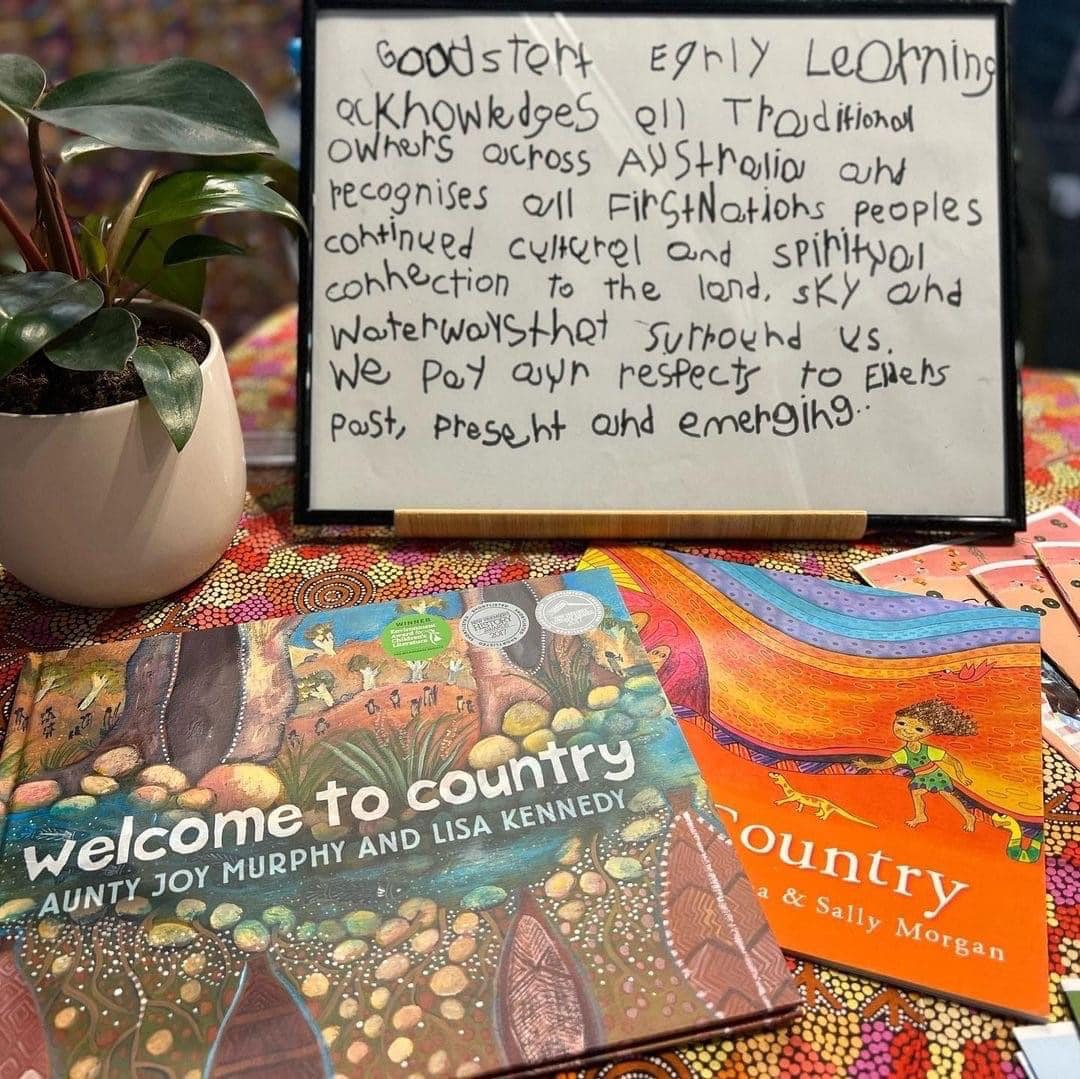 Goodstert Early Learning
acknowledges all Traditional
owners across Australia and
recognises all FirstNations peoples
continued culturel and spirityal
connection to the land, sky and
waterwaysthat surround us.
We pay ayr respects to Elders
past, present and emerging..
WINNER
Environment
Award for
Children's
Literature
HISTORY
2017
welcome to country
AUNTY JOY MURPHY AND LISA KENNEDY
Country
& Sally Morgan